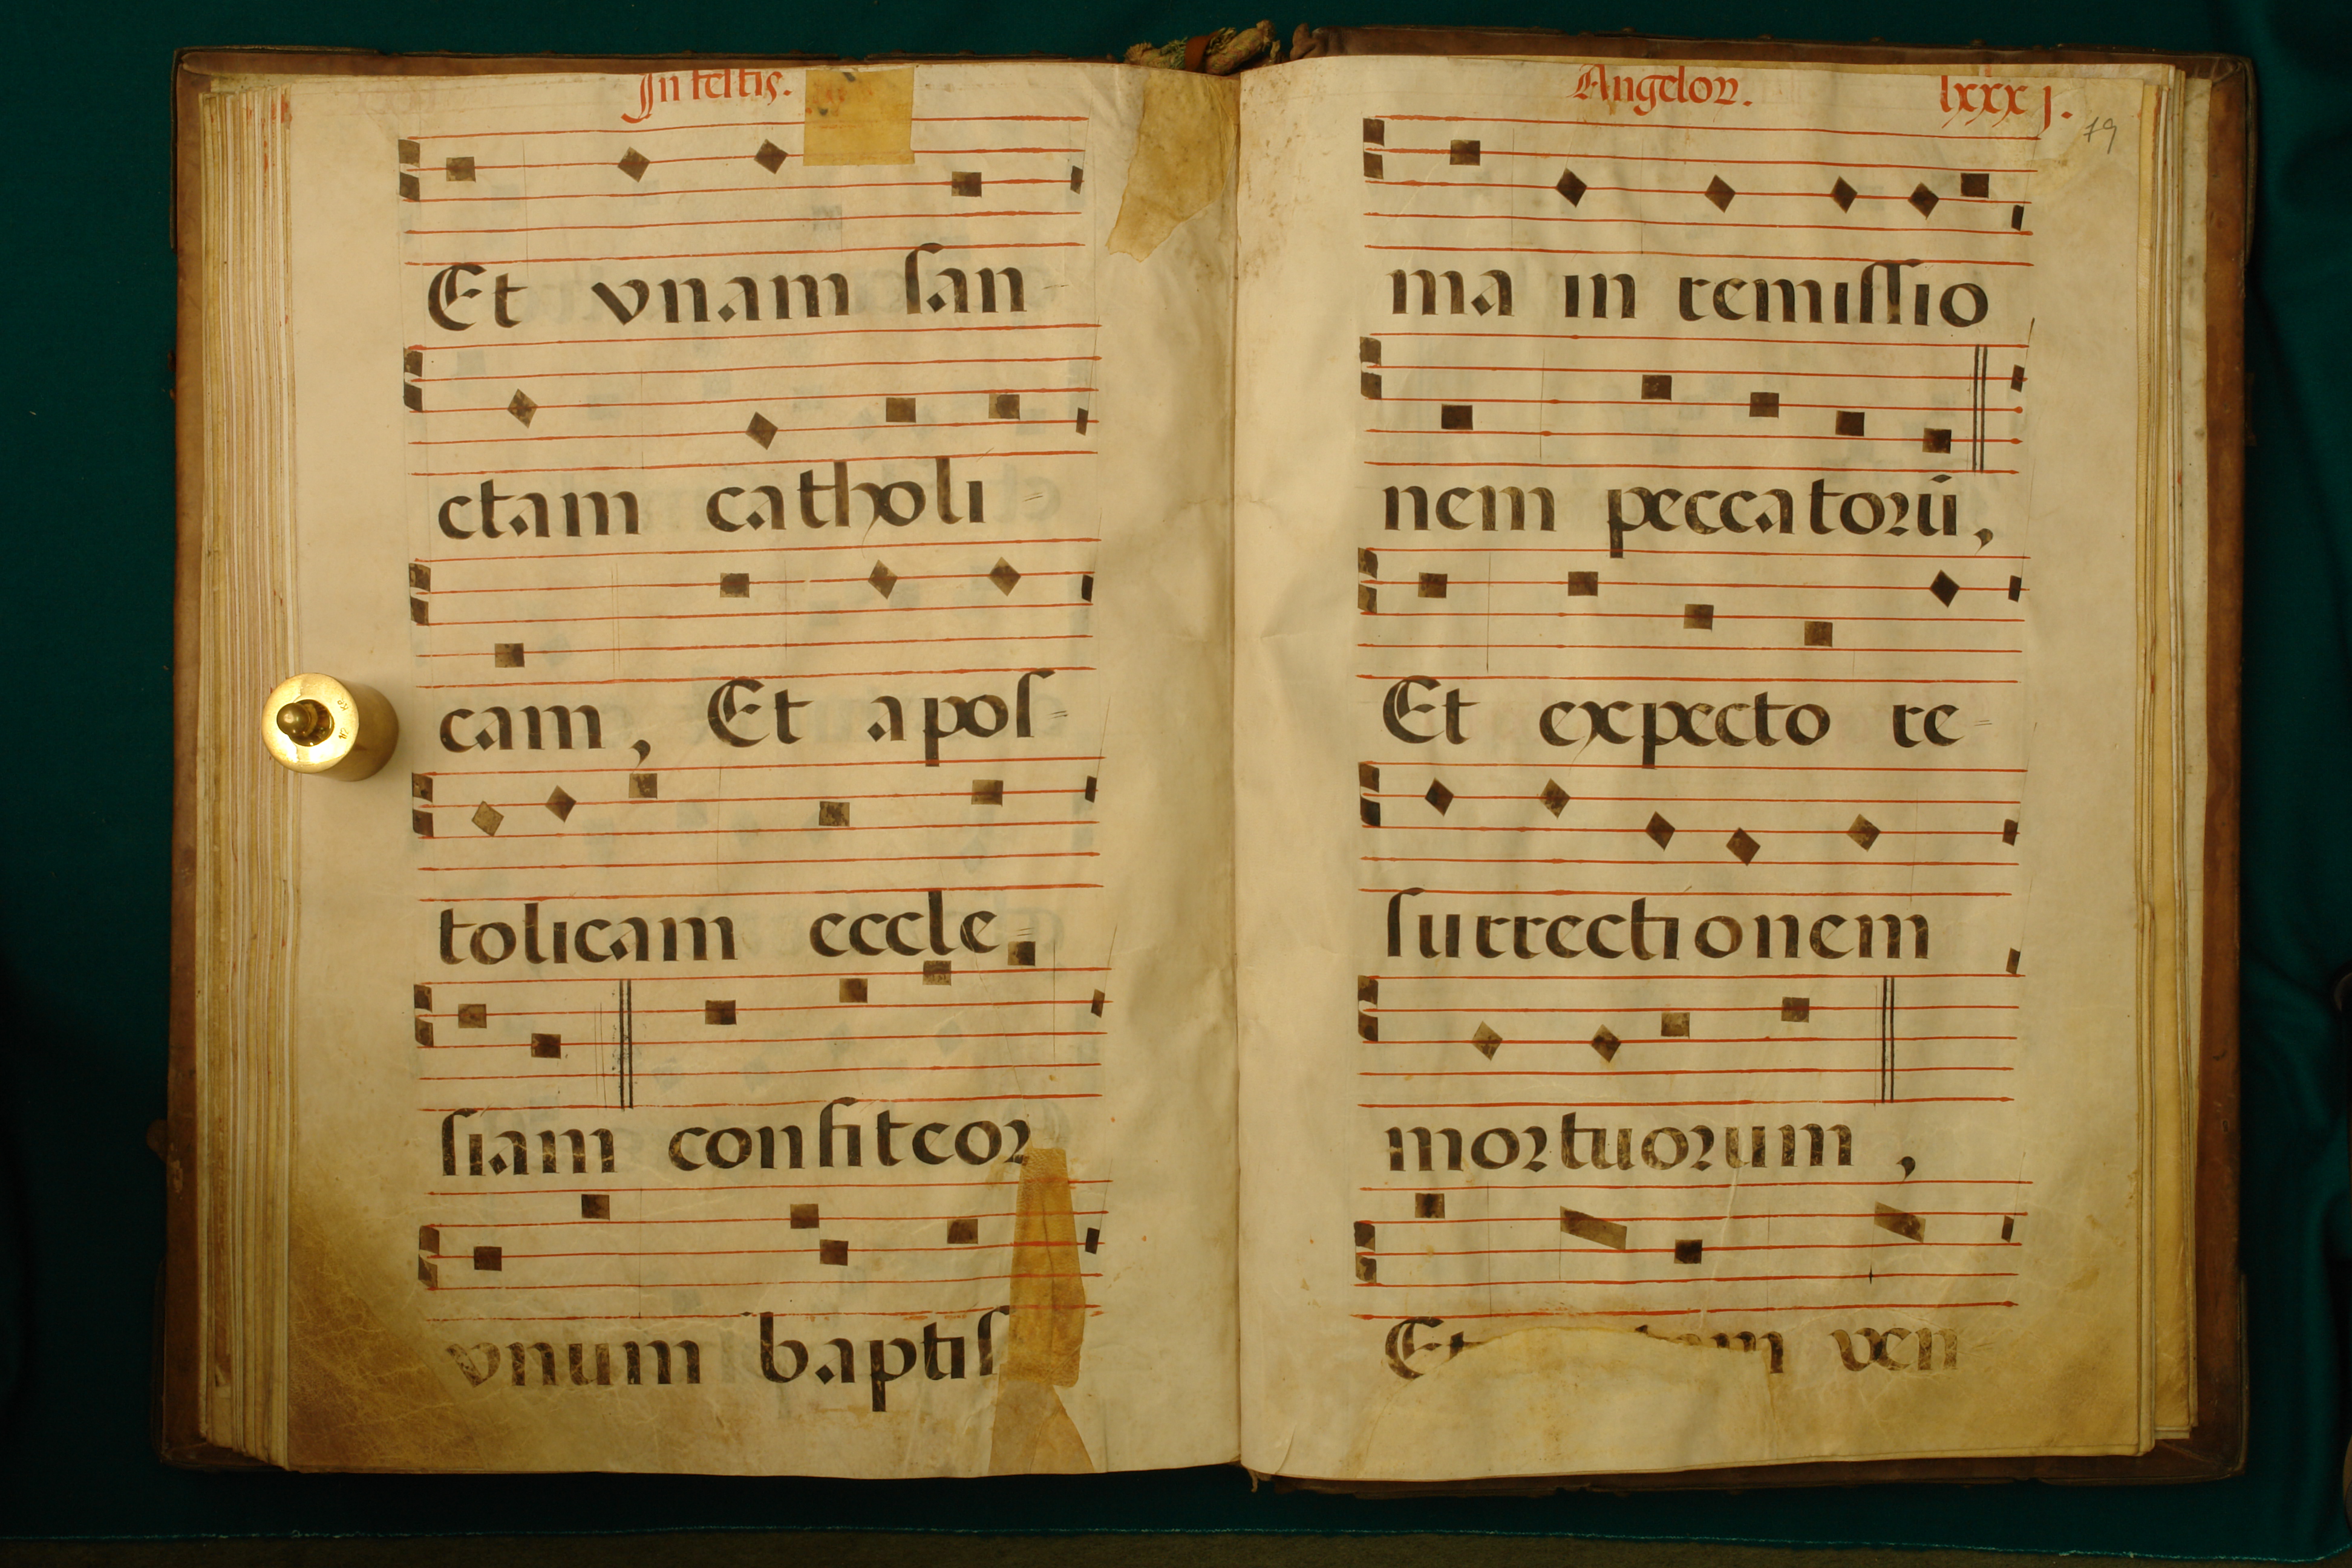 In festis.
Et vnam san-
ctam catholi-
cam, Et apos-
tolicam eccle-
siam confiteor
vnum baptis
Angeloꝝ. lxxxj.
79
ma in remissio
nem peccatorū,
Et expecto re-
surrectionem
mortuorum,
Et ven-